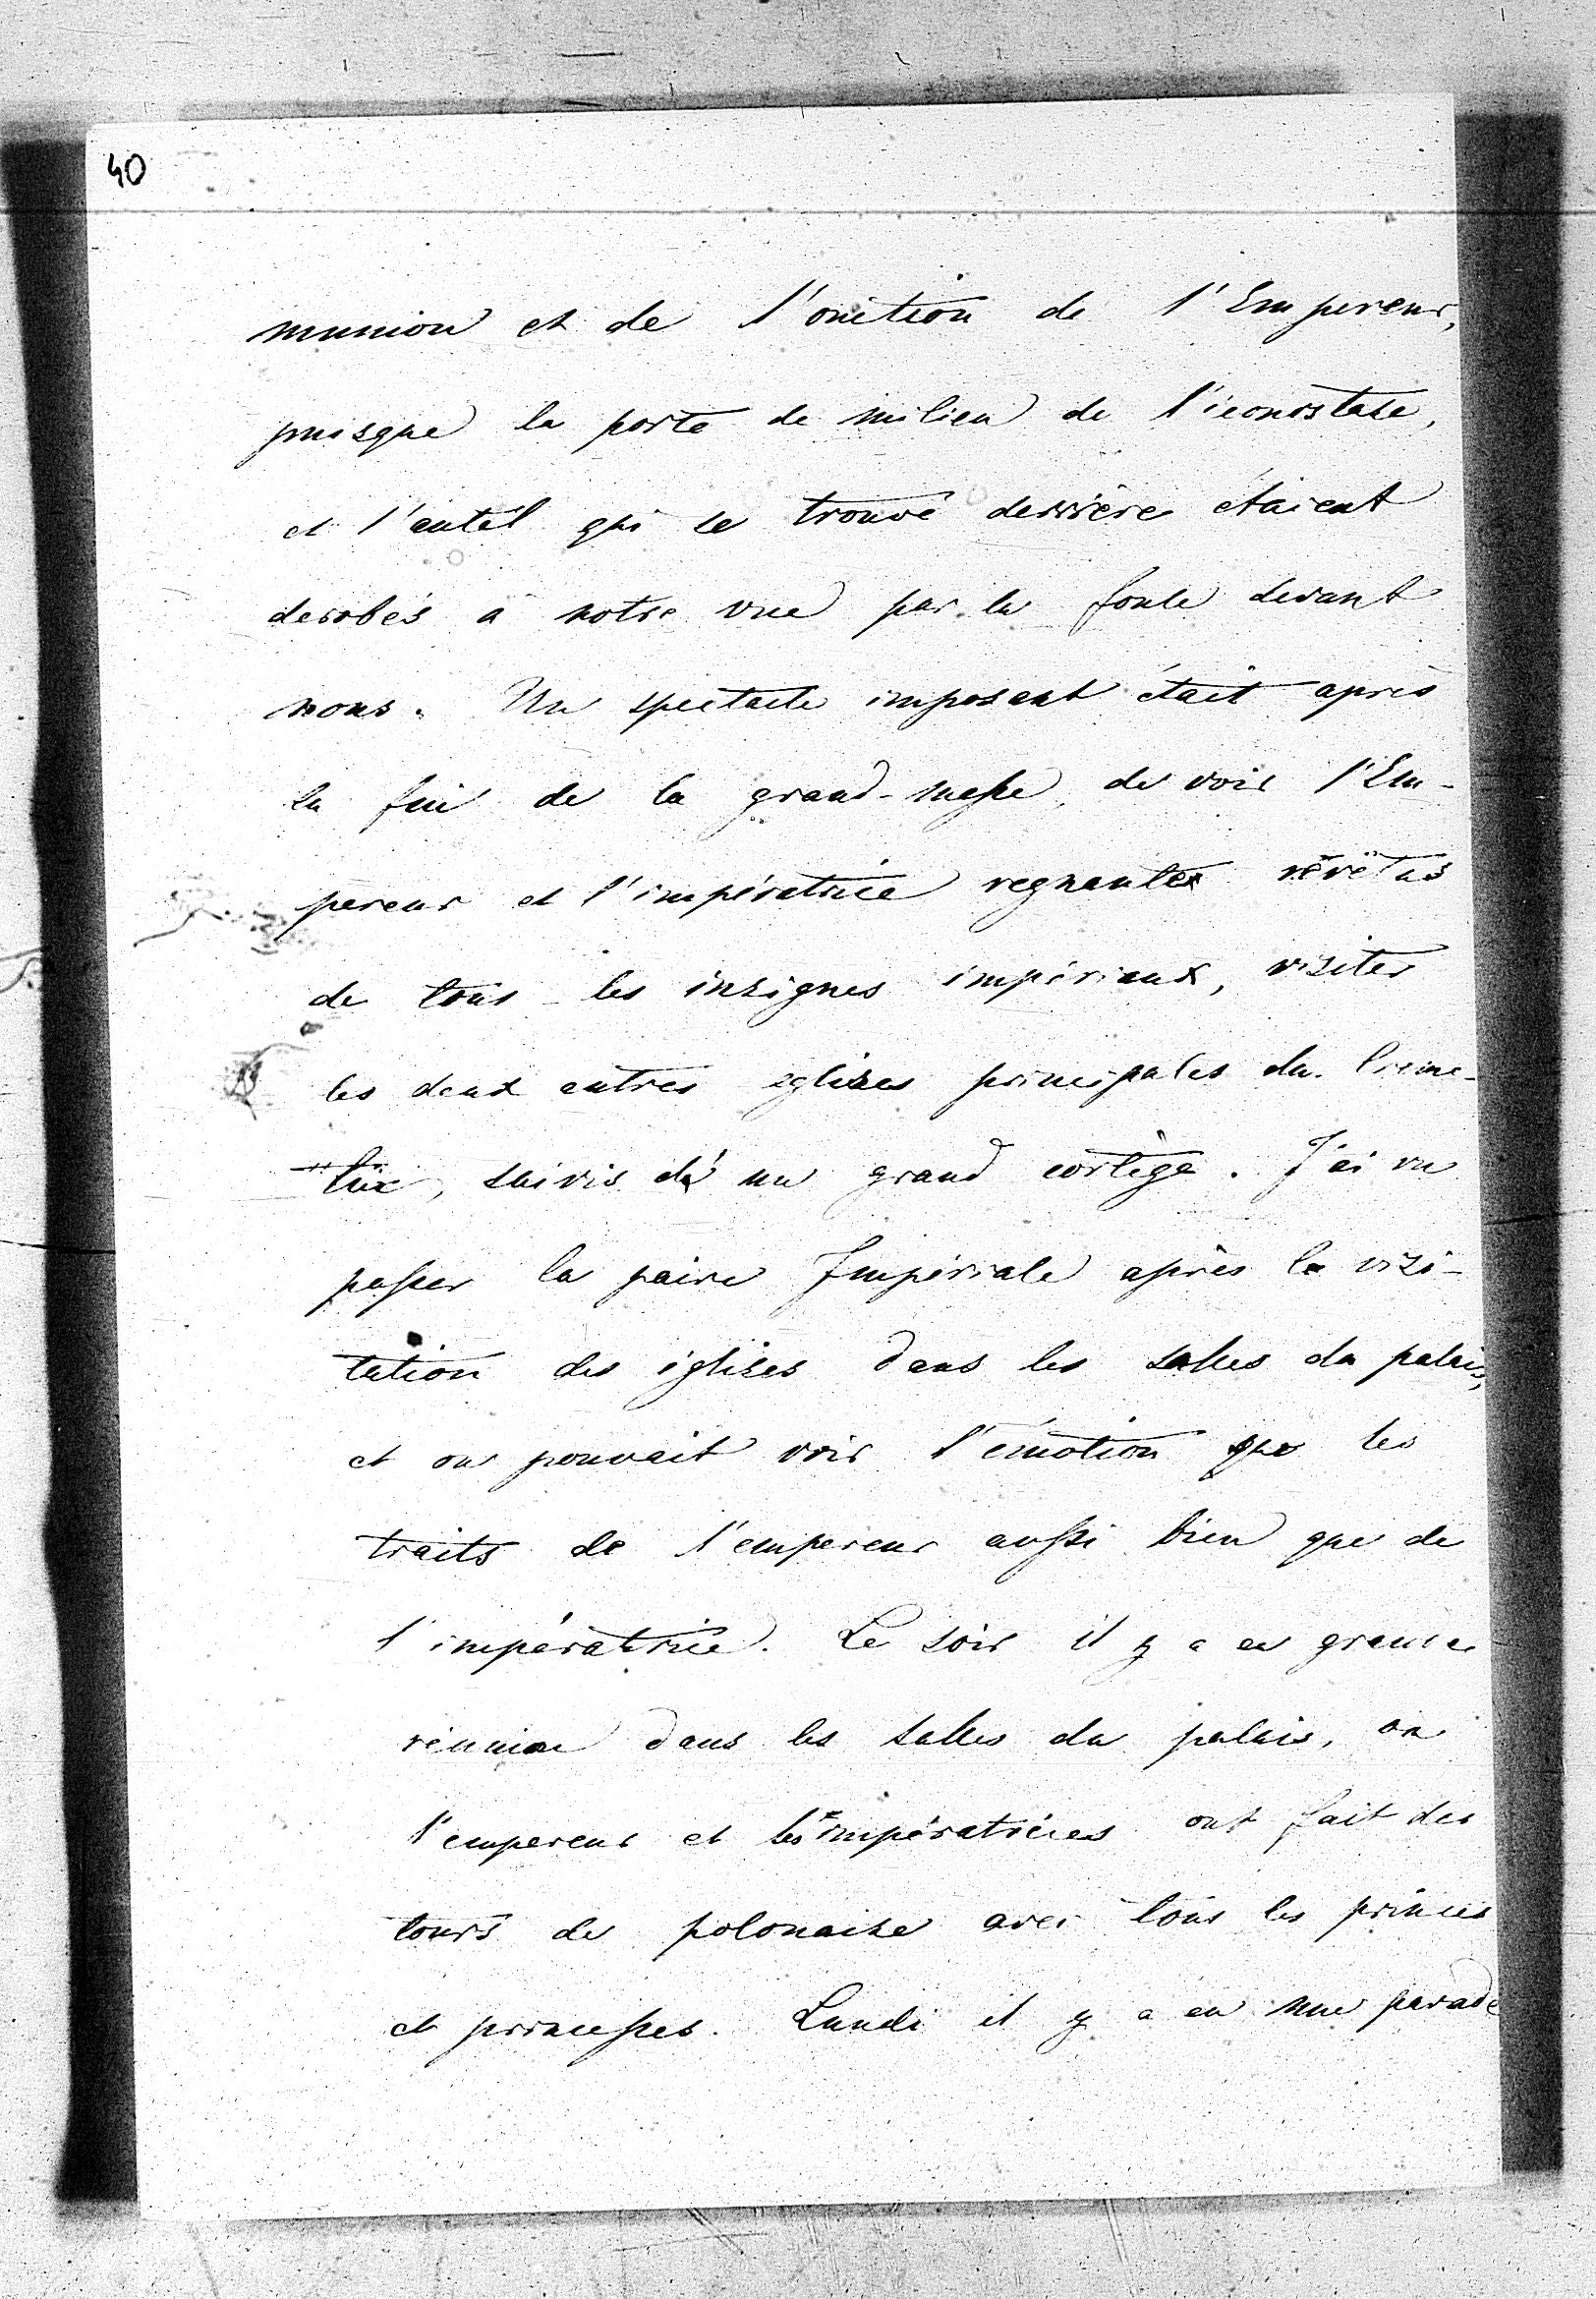 40
munion et de l'onction de l'Empereur,
puisque la porte de milieu de l'iconostase,
et l'autel qui se trouve derrière étaient
derobés à notre vue par la foule devant
nous. Un spectacle imposant était après
la fin de la grand-messe, de voir l'Em-
pereur et l'impératrice regnante revêtus
de tous les insignes impériaux, visiter
les deux autres eglises principales du Creme-
lin, suivis d'un grand cortège. J'ai vu
passer la paire Impériale après la visi-
tation des églises dans les salles du palais,
et on pouvait voir l'émotion les
traits de l'empereur aussi bien que de
l'impératrice. Le soir il y a eu grande
réunion dans les salles du palais, ou
l'empereur et les impératrices ont fait des
tours de polonaise avec tous les princes
et princesses. Lundi il y a eu une parade